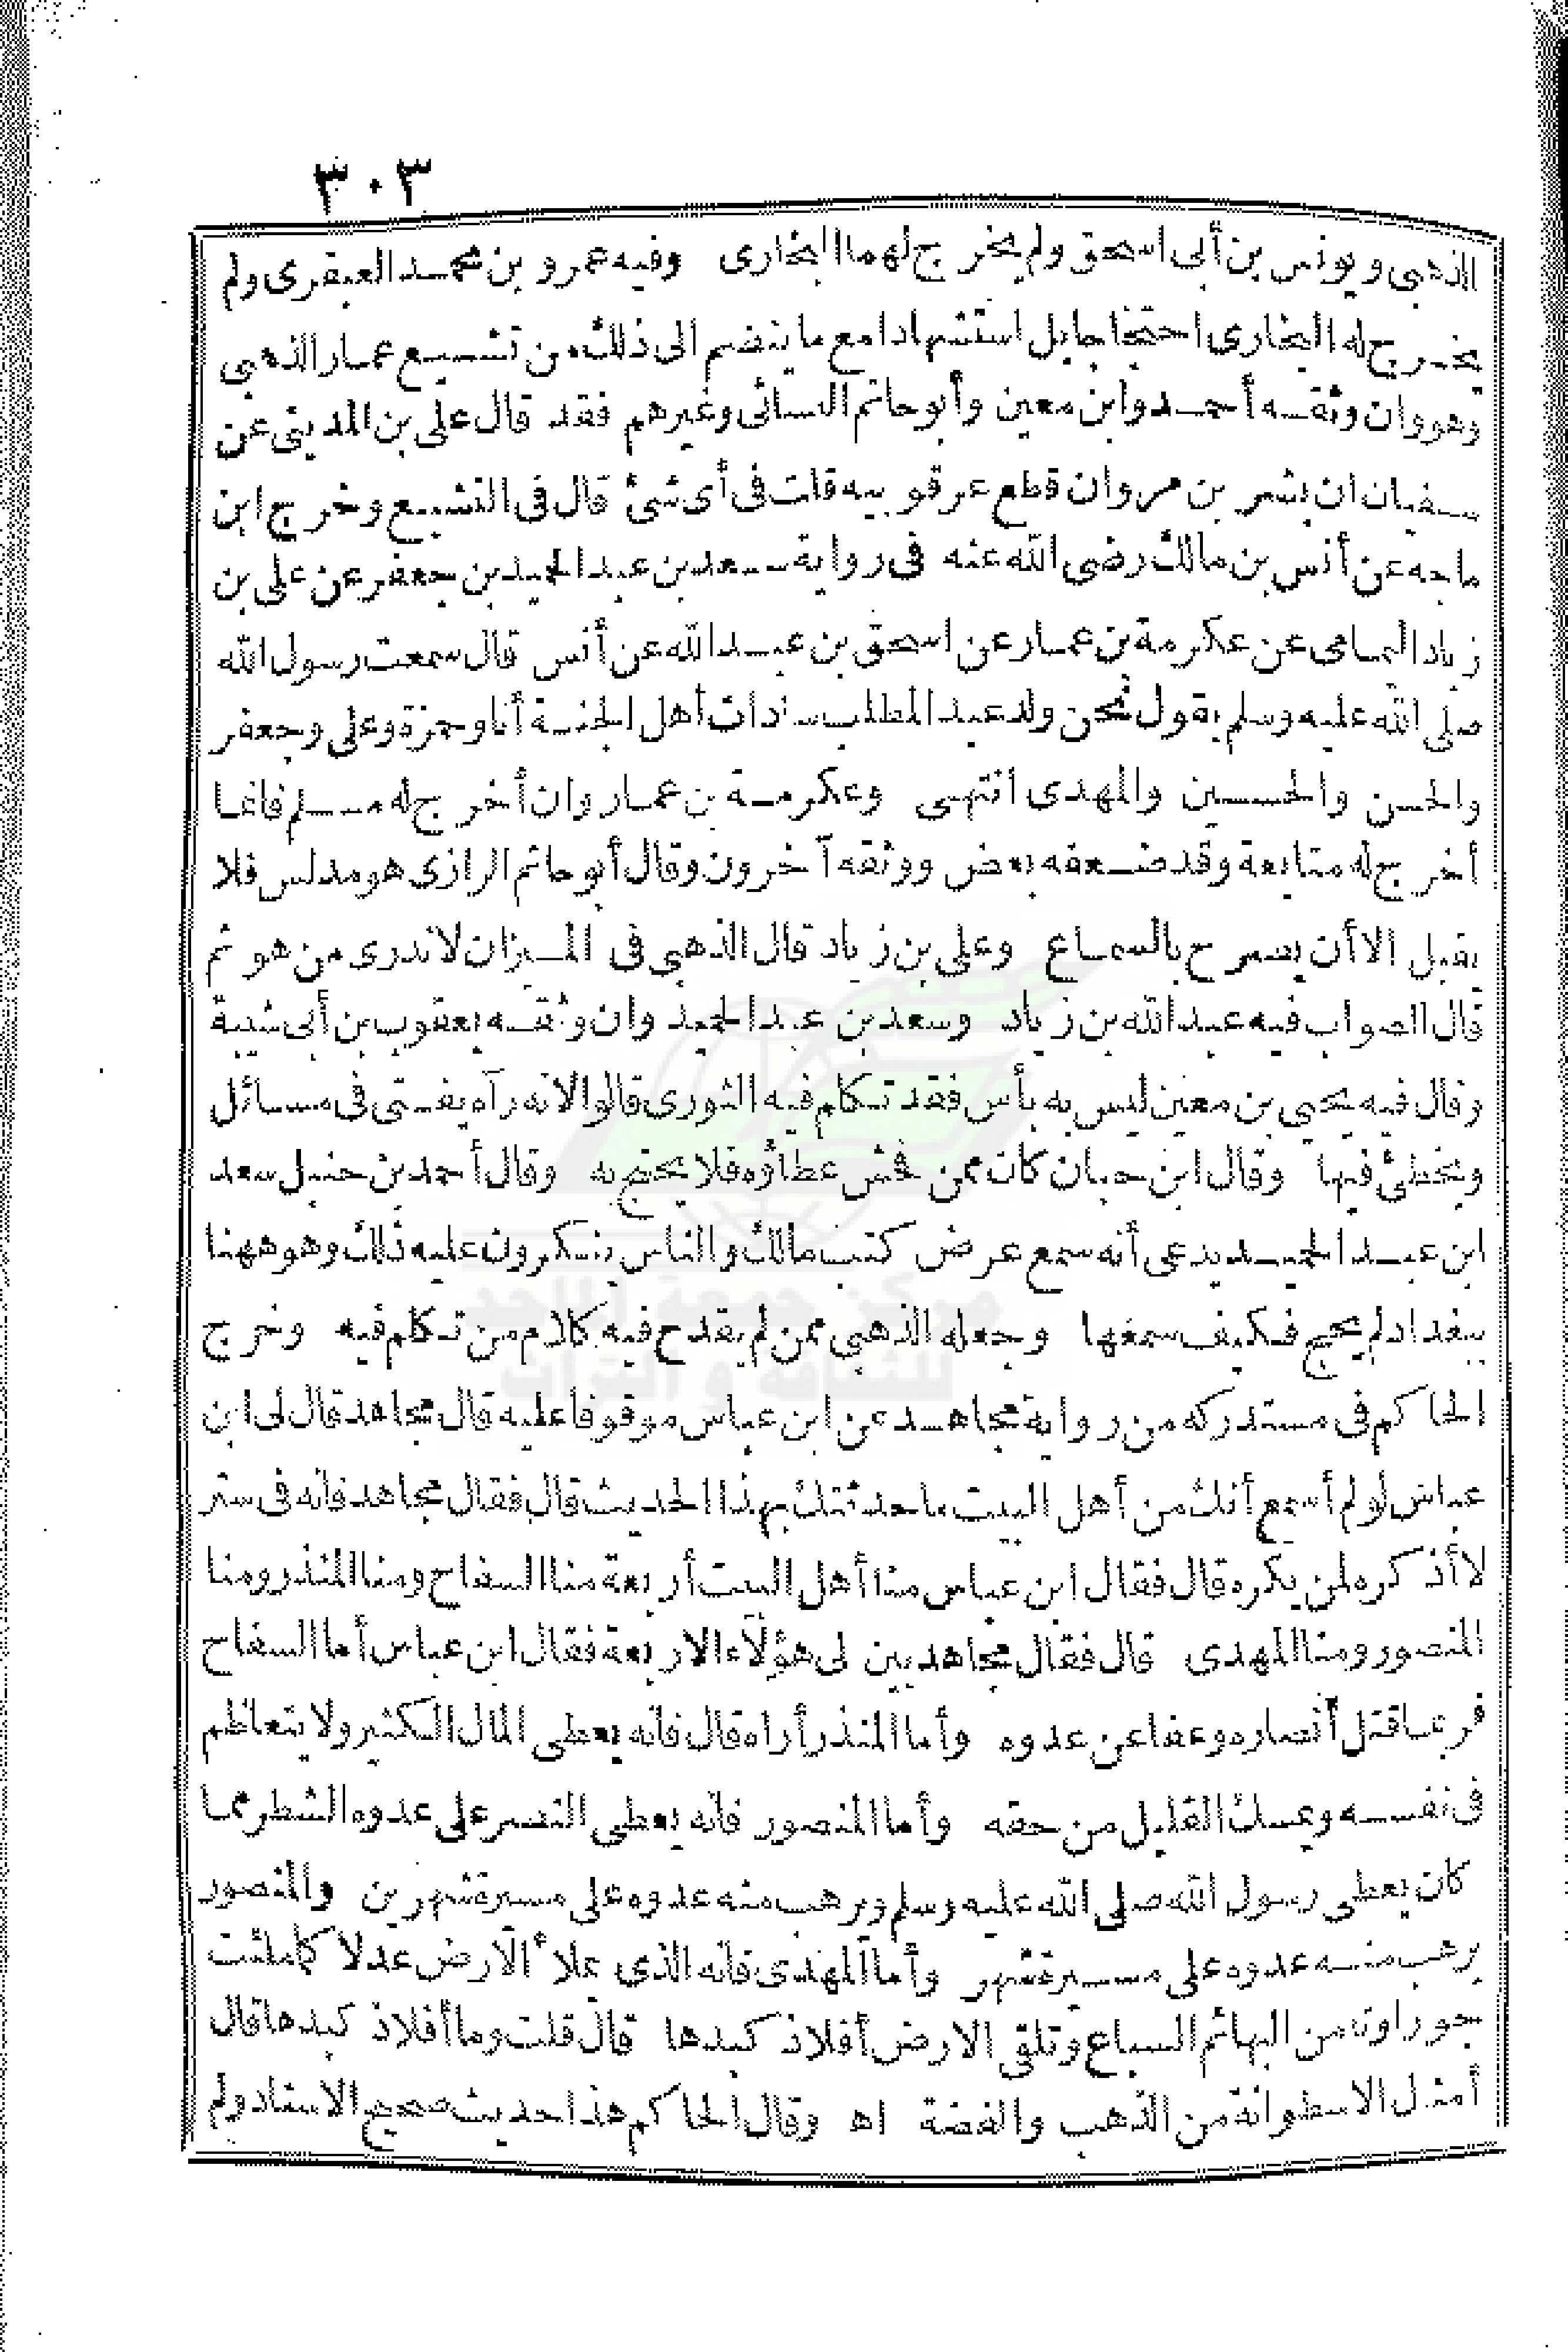 ٣٠٣
الذهبي ويونس بن أبى اسحق ولم يخرج لهما البخارى وفيه عمرو بن محمد العبقرى ولم
يخرج له البخارى احتجاجا بل استشهادا مع ما ينضم الى ذلك من تشييع عمار الذهبى
وهو وان وثقه أحمد وابن معين وأبو حاتم النسائى وغيرهم فقد قال على بن المدينى عن
سفيان ان بشر بن مروان قطع عرقوبيه قلت فى أى شئ قال فى التشييع وخرج ابن
ماجه عن أنس بن مالك رضى الله عنه فى رواية سعد بن عبد الحميد بن جعفر عن على بن
زياد اليمامى عن عكرمة بن عمار عن اسحق بن عبد الله عن أنس قال سمعت رسول الله
صلى الله عليه وسلم يقول نحن ولد عبد المطلب سادات أهل الجنة أنا وحمزة وعلى وجعفر
والحسن والحسين والمهدى انتهى وعكرمة بن عمار وان أخرج له مسلم فانما
أخرج له متابعة وقد ضعفه بعض ووثقه آخرون وقال أبو حاتم الرازى هو مدلس فلا
يقبل الا أن يصرح بالسماع وعلى بن زياد قال الذهبي فى الميزان لا ندرى من هو ثم
قال الصواب فيه عبد الله بن زياد وسعد بن عبد الحميد وان وثقه يعقوب بن أبى شيبة
وقال فيه يحيى بن معين ليس به بأس فقد تكلم فيه الثورى قالوا لانه رآه يفتى فى مسائل
ويخطئ فيها وقال ابن حبان كان ممن فحش عطاؤه فلا يحتج به وقال أحمد بن حنبل سعد
ابن عبد الحميد يدعى أنه سمع عرض كتب مالك والناس ينكرون عليه ذلك وهو ههنا
ببغداد لم يحج فكيف سمعها وجعله الذهبي ممن لم يقدح فيه كلام من تكلم فيه وخرج
الحاكم فى مستدركه من رواية مجاهد عن ابن عباس موقوفا عليه قال مجاهد قال لى ابن
عباس لو لم أسمع أنك من أهل البيت ما حدثتك بهذا الحديث قال فقال مجاهد فانه فى ستر
لا أذكره لمن يكره قال فقال ابن عباس منا أهل البيت أربعة منا السفاح ومنا المنذر ومنا
المنصور ومنا المهدى قال فقال مجاهد بين لى هؤلاء الاربعة فقال ابن عباس أما السفاح
فربما قتل أنصاره وعفا عن عدوه وأما المنذر أراه قال فانه يعطى المال الكثير ولا يتعاظم
فى نفسه ويمسك القليل من حقه وأما المنصور فانه يعطى النصر على عدوه الشطر مما
كان يعطى رسول الله صلى الله عليه وسلم ويرهب منه عدوه على مسيرة شهرين والمنصور
يرهب منه عدوه على مسيرة شهر وأما المهدى فانه الذى يملأ الارض عدلا كما ملئت
جورا وتأمن البهائم السباع وتلقى الارض أفلاذ كبدها قال قلت وما أفلاذ كبدها قال
أمثال الاسطوانة من الذهب والفضة اه وقال الحاكم هذا حديث صحيح الاسناد ولم
مركز جمعة الماجد
للثقافة و التراث